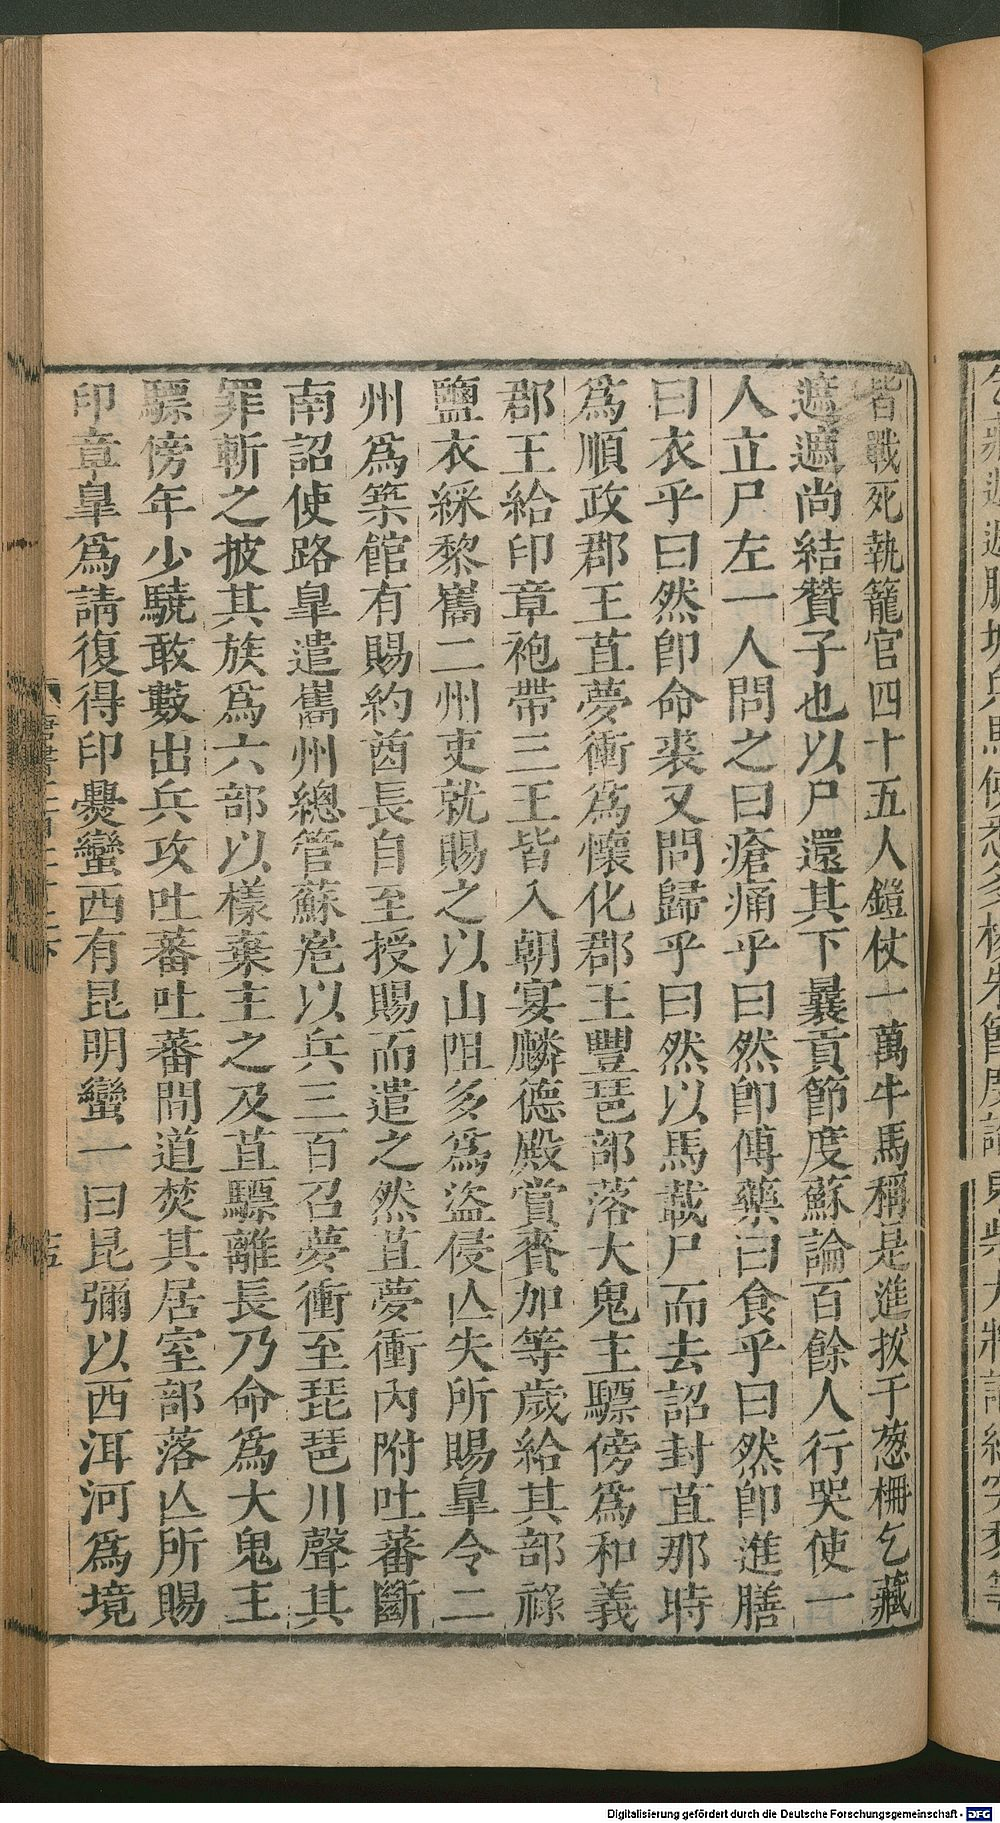 皆戰死執籠官四十五人鎧仗一萬牛馬稱是進拔于葱柵乞藏
遮遮尚結贊子也以尸還其下曩貢節度蘇論百餘人行哭使一
人立尸左一人問之曰瘡痛乎曰然卽傅藥曰食乎曰然卽進膳
曰衣乎曰然卽命裘又問歸乎曰然以馬載尸而去詔封苴那時
爲順政郡王苴夢衝爲懷化郡王豐琶部落大鬼主驃傍爲和義
郡王給印章袍帶三王皆入朝宴麟德殿賞賚加等歲給其部祿
鹽衣綵黎巂二州吏就賜之以山阻多爲盜侵亾失所賜皐令二
州爲築館有賜約酋長自至授賜而遣之然苴夢衝內附吐蕃斷
南詔使路皐遣巂州總管蘇峞以兵三百召夢衝至琵琶川聲其
罪斬之披其族爲六部以樣棄主之及苴驃離長乃命爲大鬼主
驃傍年少驍敢數出兵攻吐蕃吐蕃間道焚其居室部落亾所賜
印章皐爲請復得印爨蠻西有昆明蠻一曰昆彌以西洱河爲境
Digitalisierung gefördert durch die Deutsche Forschungsgemeinschaft - DFG